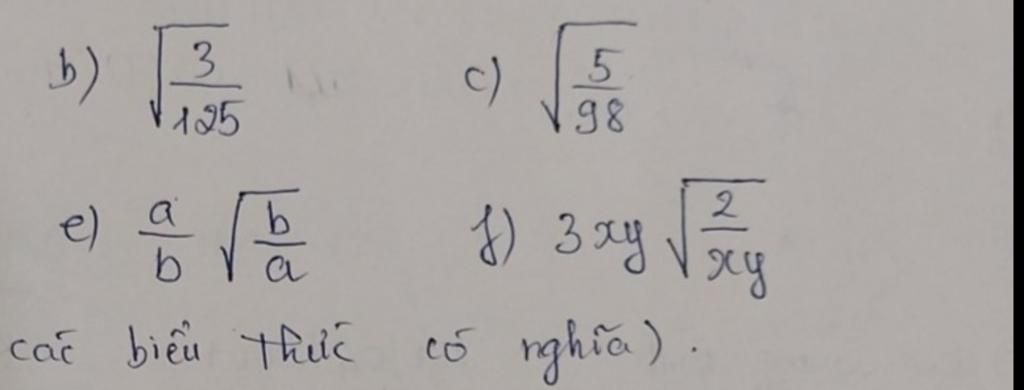 b) √(3/125) c) √(5/98)
e) a/b √(b/a) f) 3xy √(2/xy)
các biểu thức có nghĩa).